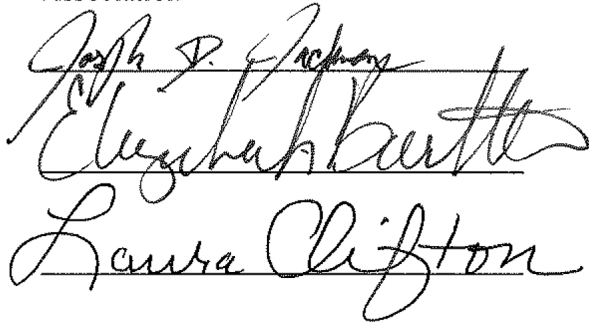 Joseph D. Jackman
Elizabeth Bartlett
Laura Clifton